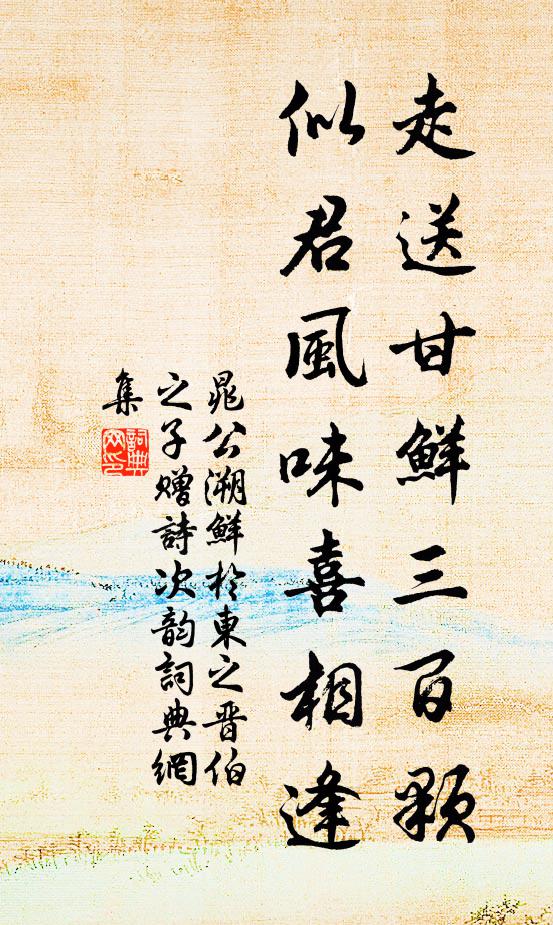 走送甘鮮三百顆
似君風味喜相逢
晁公溯鮮於東之晋伯
之子贈詩次韵詞典網
集
詞典
网印